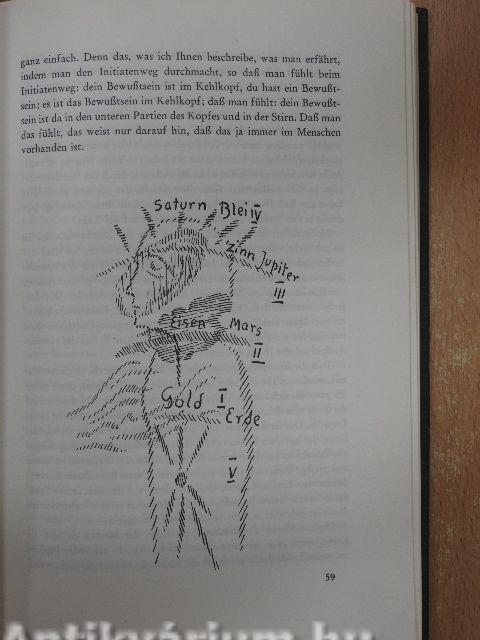 ganz einfach. Denn das, was ich Ihnen beschreibe, was man erfährt,
indem man den Initiatenweg durchmacht, so daß man fühlt beim
Initiatenweg: dein Bewußtsein ist im Kehlkopf, du hast ein Bewußt-
sein; es ist das Bewußtsein im Kehlkopf; daß man fühlt: dein Bewußt-
sein ist da in den unteren Partien des Kopfes und in der Stirn. Daß man
das fühlt, das weist nur darauf hin, daß das ja immer im Menschen
vorhanden ist.
Saturn Blei IV
Zinn Jupiter
III
Eisen Mars
II
Gold I
Erde
V
59
Antikvárium.hu